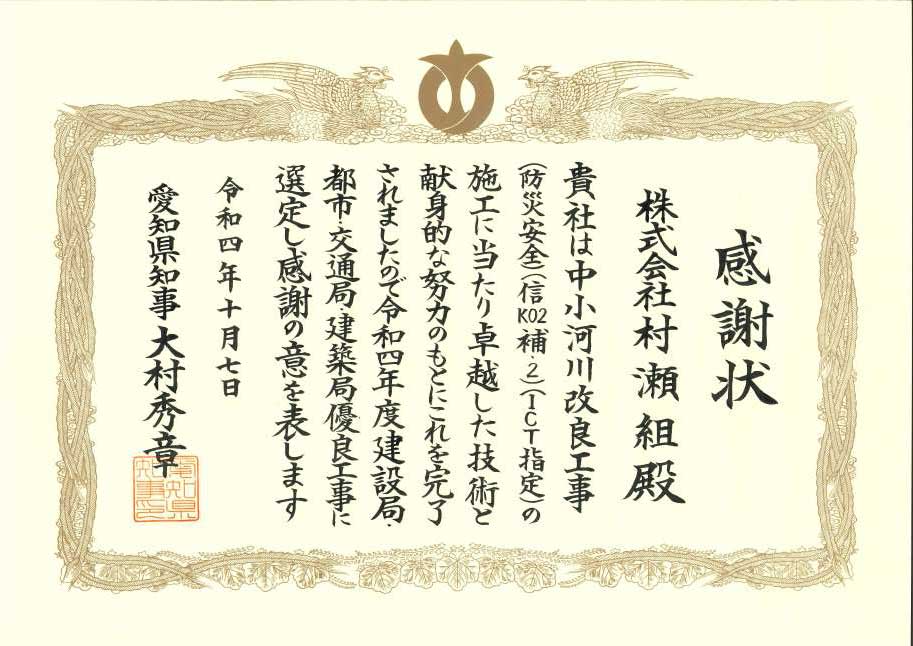 感謝状
株式会社村瀬組殿
貴社は中小河川改良工事
(防災安全)(信K02補・2)(ICT指定)の
施工に当たり卓越した技術と
献身的な努力のもとにこれを完了
されましたので令和四年度建設局・
都市・交通局・建築局優良工事に
選定し感謝の意を表します
令和四年十月七日
愛知県知事 大村秀章
愛知県知事之印